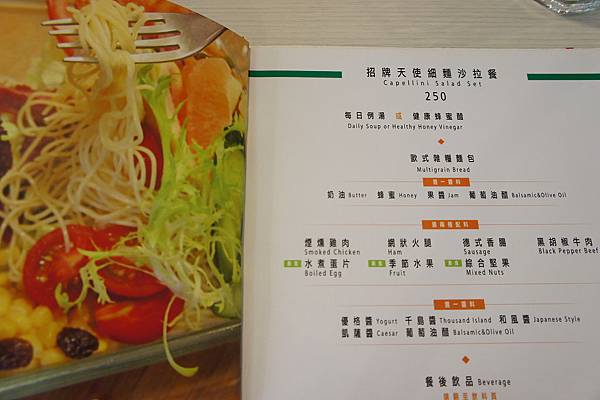 招牌天使細麵沙拉餐
Capellini Salad Set
250
每日例湯 或 健康蜂蜜醋
Daily Soup or Healthy Honey Vinegar
歐式雜糧麵包
Multigrain Bread
選一醬料
奶油 Butter 蜂蜜 Honey 果醬 Jam 葡萄油醋 Balsamic&Olive Oil
煙燻雞肉 網狀火腿 德式香腸 黑胡椒牛肉
Smoked Chicken Ham Sausage Black Pepper Beef
素食 水煮蛋片 素食 季節水果 素食 綜合堅果
Boiled Egg Fruit Mixed Nuts
選一醬料
優格醬 Yogurt 千島醬 Thousand Island 和風醬 Japanese Style
凱薩醬 Caesar 葡萄油醋 Balsamic&Olive Oil
餐後飲品 Beverage